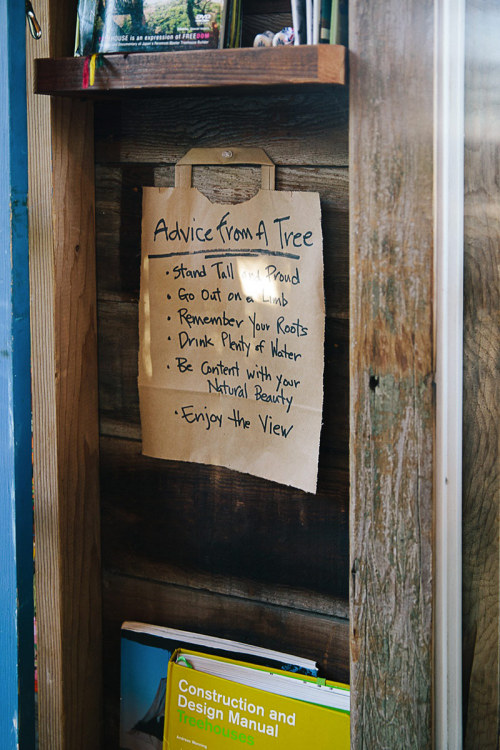 HOUSE is an expression of FREEDOM
Advice From A Tree
• Stand Tall and Proud
• Go Out on a Limb
• Remember Your Roots
• Drink Plenty of Water
• Be Content with your
Natural Beauty
• Enjoy the View
Construction and
Design Manual
Treehouses